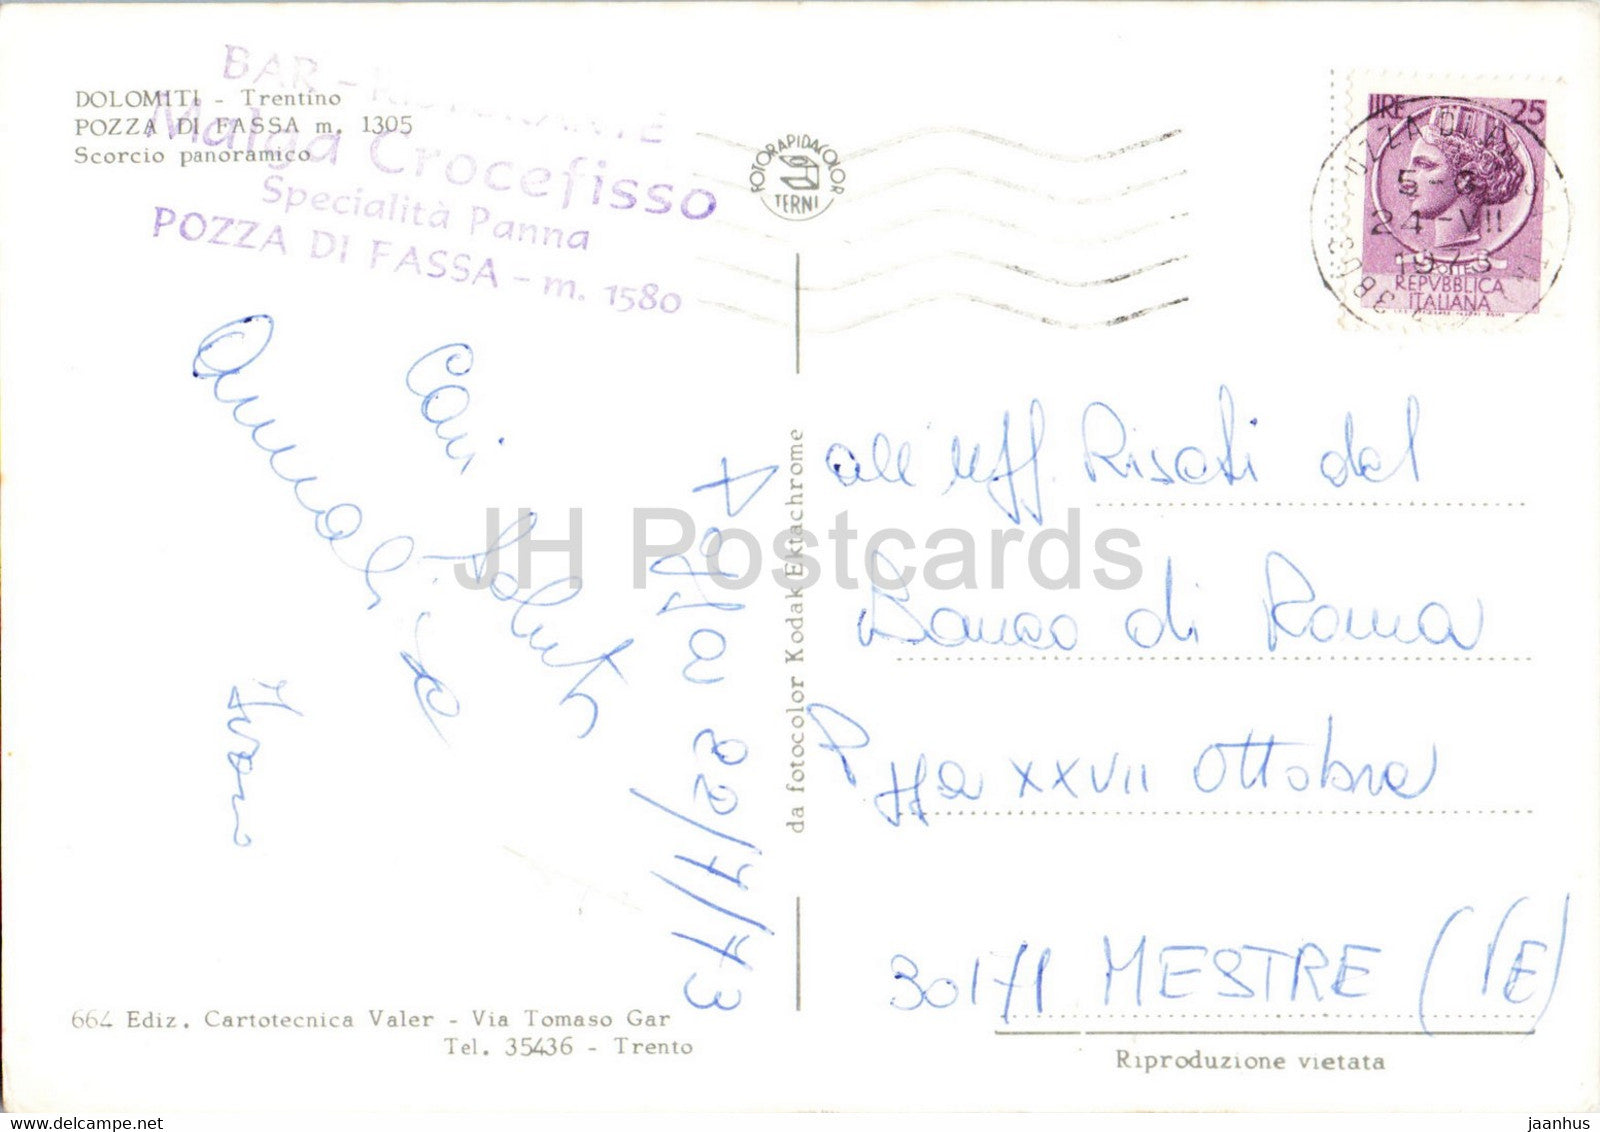 DOLOMITI - Trentino
POZZA DI FASSA m. 1305
Scorcio panoramico
BAR - RISTORANTE
Malga Crocefisso
Specialità Panna
POZZA DI FASSA - m. 1580
FOTORAPIDACOLOR
TERNI
LIRE 25
5-
24-VII
1973
REPVBBLICA
ITALIANA
Cari
Saluti
Annalisa
22/7/73
da fotocolor Kodak Ektachrome
all'Uff. Risati del
Banco di Roma
P.zza XXVII Ottobre
30171 MESTRE (VE)
664 Ediz. Cartotecnica Valer - Via Tomaso Gar
Tel. 35436 - Trento
Riproduzione vietata
JH Postcards
jaanhus